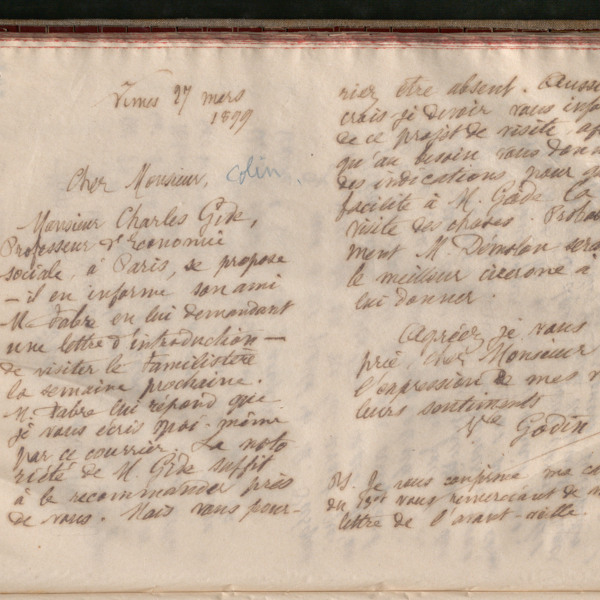 Nimes 27 mars
1899
Cher Monsieur, Colin.
Monsieur Charles Gide,
Professeur d'Economie
sociale, à Paris, se propose
— il en informe son ami
M. Fabre en lui demandant
une lettre d'introduction —
de visiter le Familistère
la semaine prochaine.
M. Fabre lui répond que
je vous écris moi-même
par ce courrier. La noto
riété de M. Gide suffit
à le recommander près
de vous. Mais vous pour-
riez être absent. Aussi
crois-je devoir vous info
de ce projet de visite, af
qu'au besoin vous donn
des indications pour q
facilité à M. Gide la
visite des choses. Probab
ment M. Demolon sera
le meilleur cicerone à
lui donner.
Agréez, je vous
prie, cher Monsieur
l'expression de mes
leurs sentiments
Vve Godin
PS. Je vous confirme ma
du vous remerciant de
lettre de l'avant-veille.